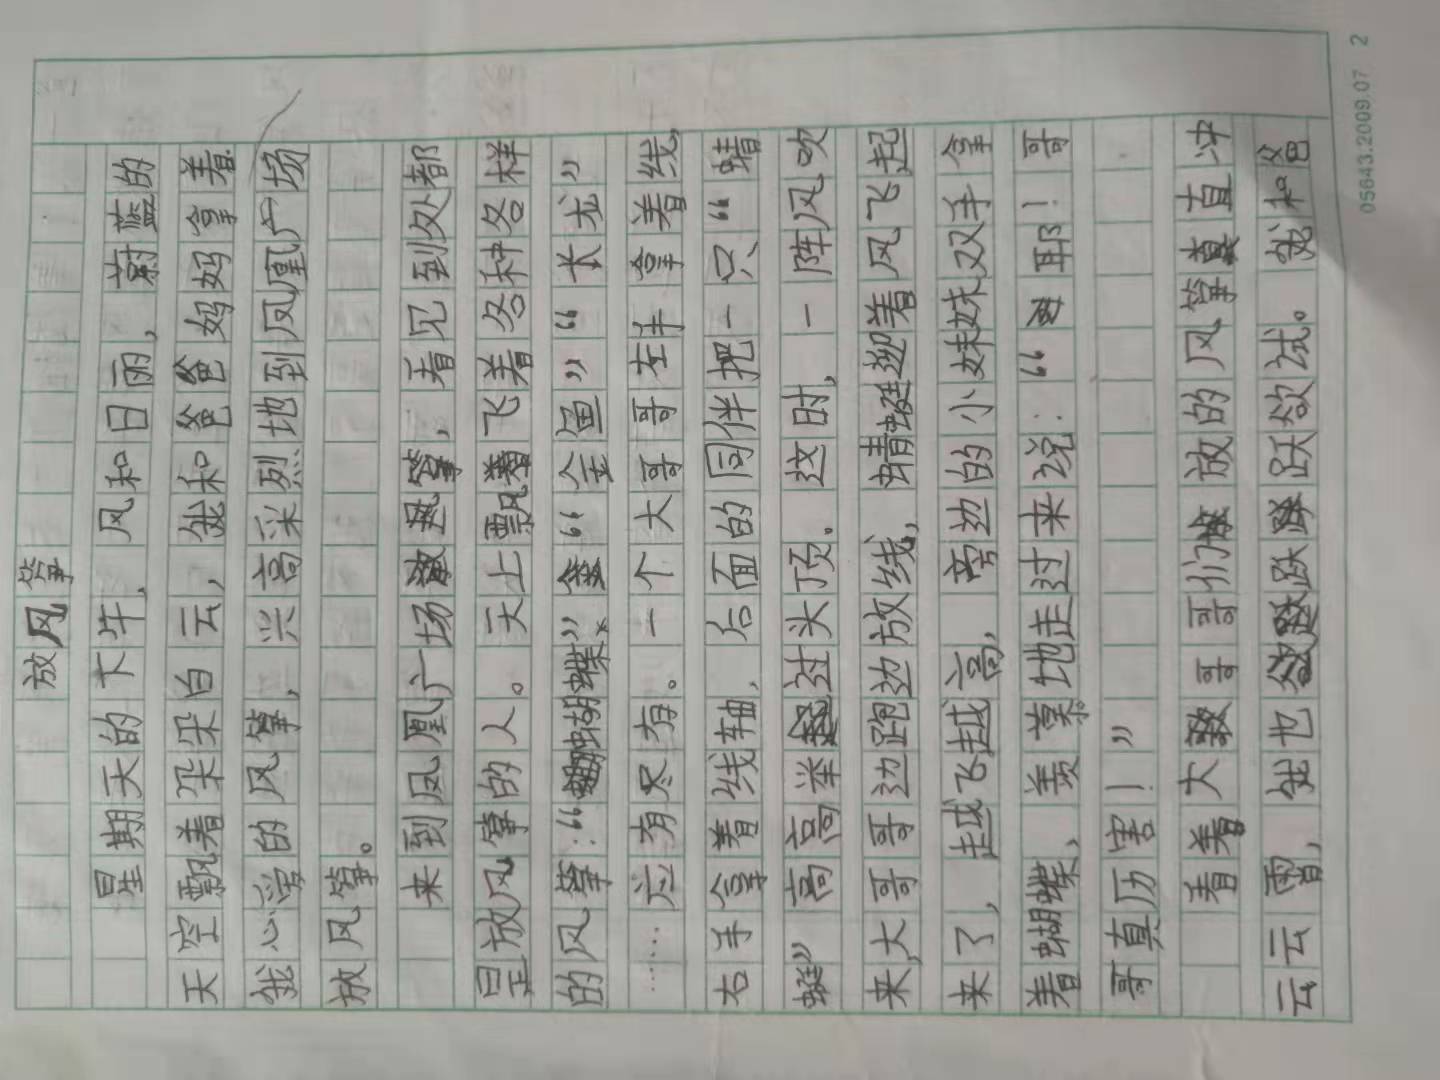 放风筝
星期天的下午,风和日丽,蔚蓝的
天空飘着朵朵白云,我和爸爸妈妈拿着
我心爱的风筝,兴高采烈地到凤凰广场
放风筝。
来到凤凰广场,看见到处都
是放风筝的人。天上飘着飞着各种各样
的风筝:“蝴蝶”“金鱼”“长龙”
……应有尽有。一个大哥哥左手拿着线,
右手拿着线轴,后面的同伴把一只“蜻
蜓”高高举过头顶。这时,一阵风吹
来,大哥哥边跑边放线,蜻蜓迎着风飞起
来了,越飞越高,旁边的小妹妹双手拿
着蝴蝶,羡慕地走过来说:“耶!哥
哥真历害!”
看着大哥哥们放的风筝直冲
云云霄,我也跃跃欲试。我和爸
05643.2009.07 2